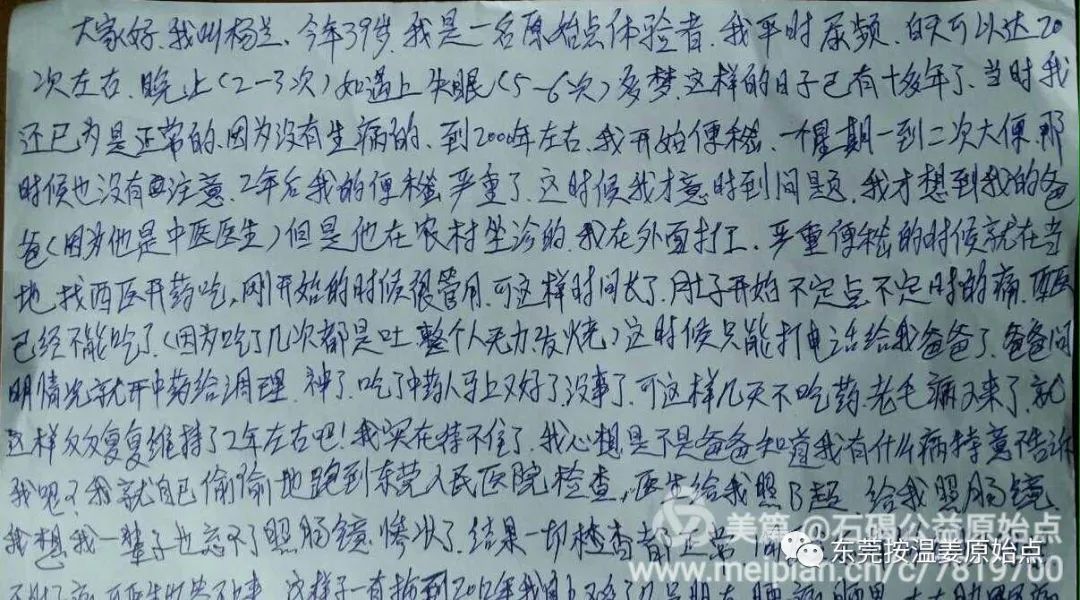 大家好,我叫杨兰,今年39岁,我是一名原始点体验者,我平时尿频,白天可以达20
次左右,晚上(2-3次)如遇上失眠(5-6次)多梦,这样的日子已有十多年了,当时我
还已为是正常的,因为没有生病的,到200年左右,我开始便秘,一星期一到二次大便,那
时候也没有注意,2年后我的便秘严重了,这时候我才意时到问题,我才想到我的爸
爸(因为他是中医医生)但是他在农村坐诊的,我在外面打工,严重便秘的时候就在当
地找西医开药吃,刚开始的时候很管用,可这样时间长了,肚子开始不定点不定时的痛,西医
已经不能吃了(因为吃了几次都是吐,整个人无力,发烧)这时候只能打电话给我爸爸了,爸爸问
明情况就开中药给调理,神了,吃了中药人马上又好了,没事了,可这样几天不吃药,老毛病又来了,就
这样反反复复维持了2年左右吧!我实在持不住了,我心想是不是爸爸知道我有什么病特意不告诉
我呢?我就自己偷偷地跑到东莞人民医院检查,医生给我照B超,给我照肠镜
我想我一辈子也忘不了照肠镜惨状了,结果一切检查都正常
这样子一直拖到2012年我
美篇 @石碣公益原始点
www.meipian.cn/c/7819760
东莞按温姜原始点